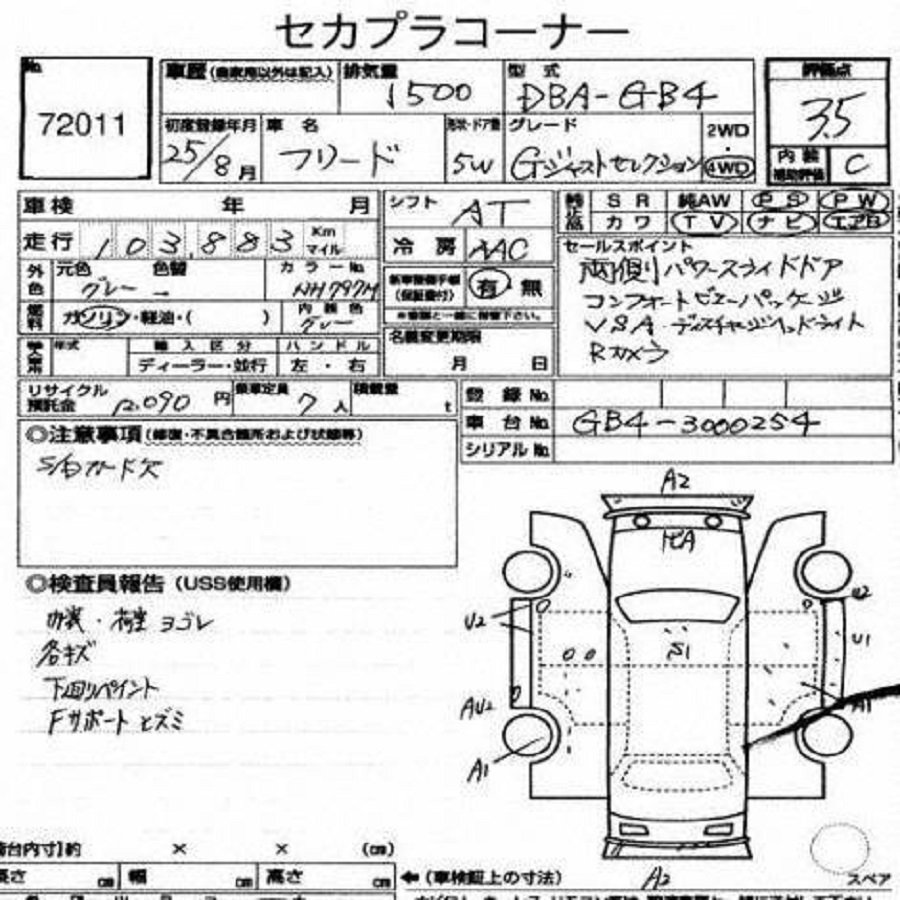 セカプラコーナー
No.
72011
車歴 (自家用以外は記入) 排気量 1500 型式 DBA-GB4
評価点 3.5
初度登録年月 25/8月 車名 フリード 形状・ドア数 5W グレード Gジャストセレクション 2WD・4WD
内装補助評価 C
車検 年 月
シフト AT
純正品 SR 純AW PS PW
カワ TV ナビ エアB
走行 103,883 Km マイル
冷房 AAC
セールスポイント
両側パワースライドドア
コンフォートビューパッケージ
VSA・ディスチャージヘッドライト
Rカメラ
外色 元色 グレー 色替 ー カラーNo. NH797M
新車整備手帳 (保証書付) 有・無
※書類と一緒に保管下さい。
燃料 ガソリン・軽油・( ) 内装色 グレー
名義変更期限
月 日
年式 輸入区分 ハンドル
ディーラー・並行 左・右
リサイクル預託金 12.090円 乗車定員 7人 積載量 t
登録No.
車台No. GB4-3000254
シリアルNo.
◎注意事項 (修復・不具合箇所および状態等)
S/Dカード欠
◎検査員報告 (USS使用欄)
内装・荷室 ヨゴレ
各キズ
下回りペイント
Fサポートヒズミ
A2
S1
U2
U2
U1
AU2
A1
A1
A2
スペア
荷台内寸】約 × × (cm)
長さ cm 幅 cm 高さ cm
← (車検証上の寸法)